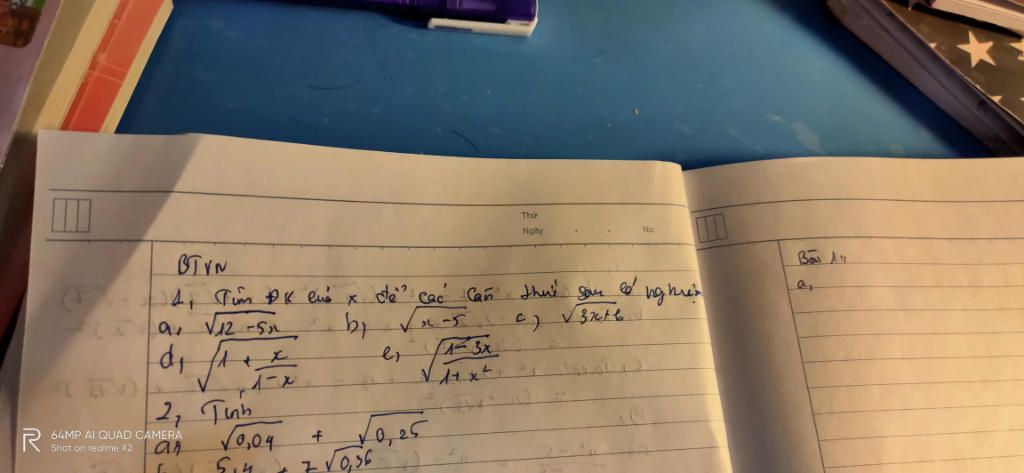 Thứ
Ngày . . No.
BTVN
1, Tìm ĐK của x để các căn thức sau có nghiệm
a, √12-5x b, √x-5 c, √3x+6
d, √1 + x/1-x e, √1-3x/1+x²
2, Tính
a, √0,04 + √0,25
5,4 + 7√0,36
Bài 1:
a,
64MP AI QUAD CAMERA
Shot on realme X2